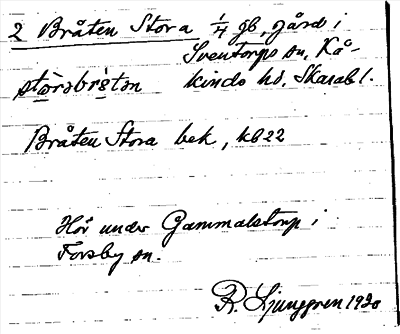 2 Bråten Stora 1/4 gb, gård i
Sventorps sn, Kå-
kinds hd, Skarab l.
Bråten Stora bek, kb 22
Hör under Gammalstorp i
Forsby sn.
R. Ljunggren 1920